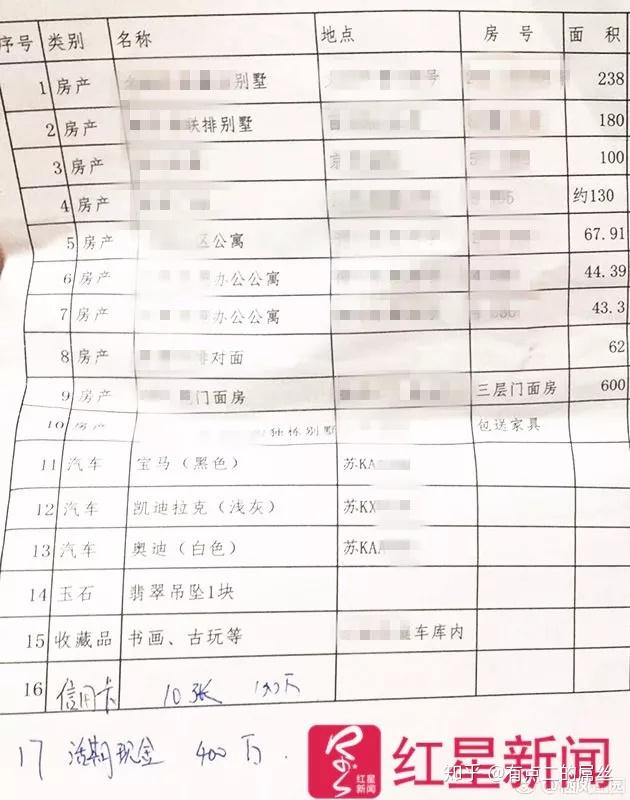 序号 类别 名称 地点 房号 面积
1 房产 别墅 号 238
2 房产 联排别墅 180
3 房产 100
4 房产 约130
5 房产 区公寓 67.91
6 房产 办公公寓 44.39
7 房产 办公公寓 43.3
8 房产 对面 62
9 房产 门面房 三层门面房 600
10 房产 独栋别墅 包送家具
11 汽车 宝马（黑色） 苏KA
12 汽车 凯迪拉克（浅灰） 苏KX
13 汽车 奥迪（白色） 苏KA
14 玉石 翡翠吊坠1块
15 收藏品 书画、古玩等 车库内
16 信用卡 10张
17 活期现金 400万.
红星新闻
红星新闻
知乎 @有点二的屌丝